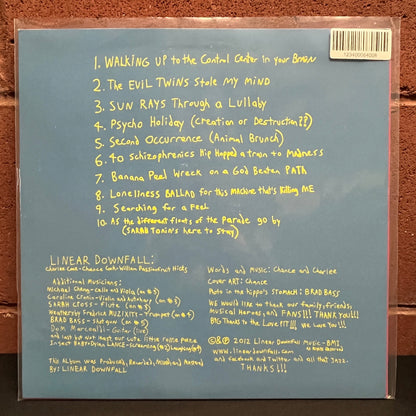 12340006400R
1. WALKING UP to the Control Center in your BRAIN
2. The EVIL TWINS Stole MY MIND
3. SUN RAYS Through a Lullaby
4. Psycho Holiday (Creation or Destruction??)
5. Second Occurrence (Animal Brunch)
6. 40 Schizophrenics Hip Hopped a train to MADNESS
7. Banana Peel Wreck on a GOD Beaten PATH
8. Loneliness BALLAD for this MACHINE that's Killing ME
9. Searching for a Feel
10. As the different floats of the Parade go by
(SARAH Tonin's here to STAY)
LINEAR DOWNFALL:
Charlee Cook - Chance Cook - William Passionfruit Hicks
Additional Musicians:
Michael Cheng - Cello and Viola (on #5)
Caroline Cronin - Violin and (on #5)
SARAH CROSS - Flute (on #5)
Weathersby Fredrick MUZIXITY - Trumpet (on #5)
BRAD BASS - Shotgun (on #5)
DOM Marcoalli - Guitar (live)
and last but not least our cute little robic piece
In
This Album was Produced, Recorded, Mixed, and Mastered
By: LINEAR DOWNFALL
Words and Music: Chance and Charlee
Cover ART: Chance
Photo in the hippo's STOMACH: BRAD BASS
WE WOULD like to thank our family, friends,
Musical Heroes, and FANS!!! THANK YOU!!!
BIG Thanks to the Love PIT!!! WE Love You!!
©&℗ 2012 Linear Downfall Music - BMI
All Rights Reserved
www.lineardownfall.com
and Facebook and Twitter and all that JAZZ.
THANKS!!!